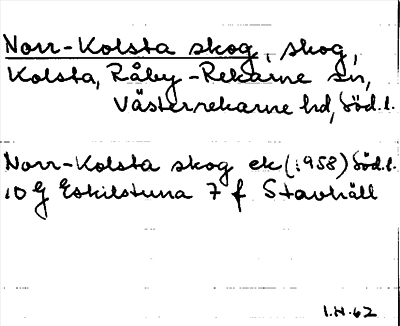 Norr-Kolsta skog, skog,
Kolsta, Råby-Rekarne sn,
Västerrekarne hd, Söd.l.
Norr-Kolsta skog ek (1958) Söd.l.
10 G Eskilstuna 7 f Stavhäll
I.H. 62